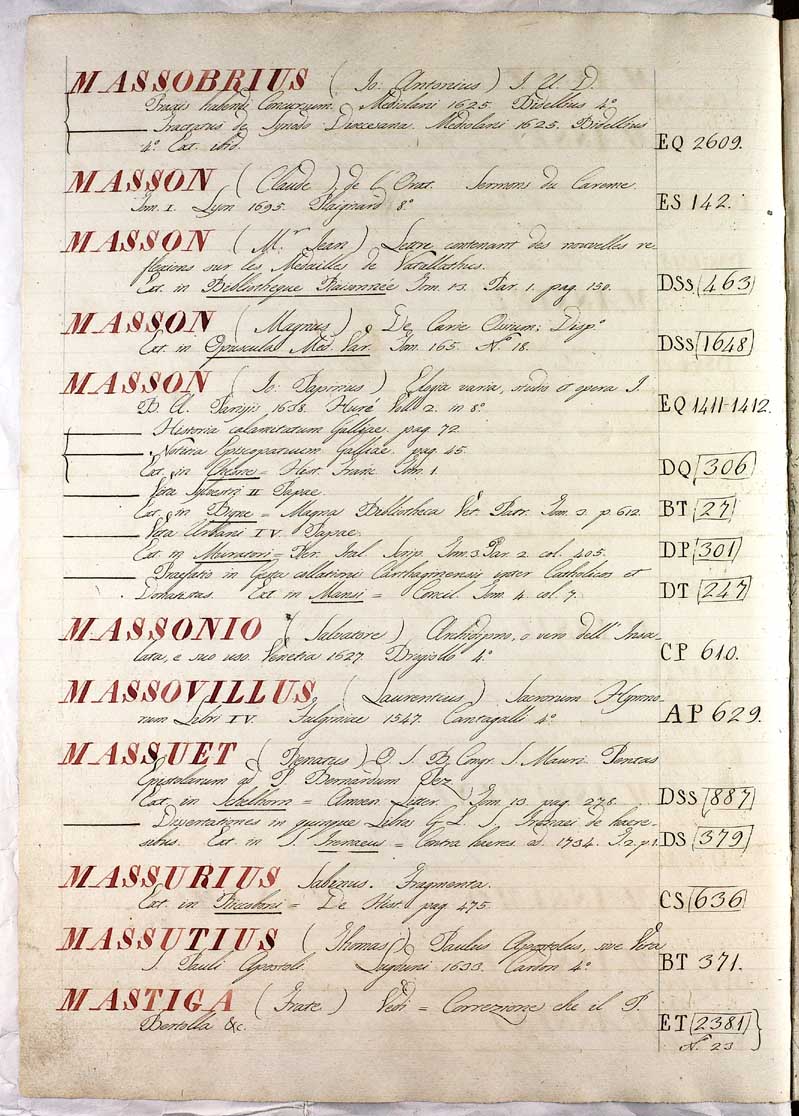 MASSOBRIUS ( Io. Antonius ) I. U. D.
Praxis habendi Concursum. Mediolani 1625. Bidellius 4.º
Tractatus de Synodo Diocesana. Mediolani 1625. Bidellius
4.º Ext. ibid. EQ 2609.
MASSON ( Claude ) de l'Orat. Sermons du Careme.
Tom. I. Lyon 1695. Plaignard 8.º ES 142.
MASSON ( M.r Jean ) Lettre contenant des nouvelles re-
flexions sur les Medailles de Vaballathus.
Ext. in Bibliotheque Raisonnée Tom. 13. Par. 1. pag. 150. DSs 463
MASSON ( Magnus ) De Carie Ossium; Disp.º
Ext. in Opuscula Med. Var. Tom. 165. N.º 18. DSs 1648
MASSON ( Io: Papirius ) Elogia varia, studio et opera I.
B. A. Parisijs 1638. Huré Voll 2. in 8.º EQ 1411-1412.
Historia calamitatum Galliae. pag. 72.
Notitia Episcopatuum Galliae, pag. 45.
Ext. in Chesne = Hist. Franc. Tom. 1. DQ 306
Vita Sylvestri II Papae.
Ext. in Bigne = Magna Bibliotheca Vet. Patr. Tom. 3. p. 612. BT 27
Vita Urbani IV. Papae.
Ext. in Muratori = Rer. Ital. Scrip. Tom. 3 Par. 2. col. 405. DP 301
Praefatio in Gesta collationis Carthaginensis inter Catholicos et
Donatistas. Ext in Mansi = Concil. Tom. 4. col. 7. DT 247
MASSONIO ( Salvatore ) Archidipno, o vero dell' Insa-
lata, e suo uso. Venetia 1627. Brogiollo 4.º CP 610.
MASSOVILLUS ( Laurentius ) Sacrorum Hymno-
rum Libri IV. Fulginiae 1547. Cantagalli 4.º AP 629.
MASSUET ( Renatus ) O. S. B. Congr. S. Mauri. Pentas
Epistolarum ad P. Bernardum Pez
Ext. in Schelhorn = Amoen. Liter. Tom. 13. pag. 278. DSS 887
Dissertationes in quinque Libros G. L. S. Irenaei de haere-
sibus. Ext. in S. Irenaeus = Contra haeres. ed. 1734. T. 2. p. 1. DS 379
MASSURIUS Sabinus. Fragmenta.
Ext. in Riccobon = De Hist. pag. 475. CS 636
MASSUTIUS ( Thomas ) Paulus Apostolus, sive Vita
S. Pauli Apostoli. Lugduni 1633. Cardon 4.º BT 371.
MASTIGA ( Frate ) Vedi = Correzione che il P.
Bertolla &c. ET 2381
N.º 23